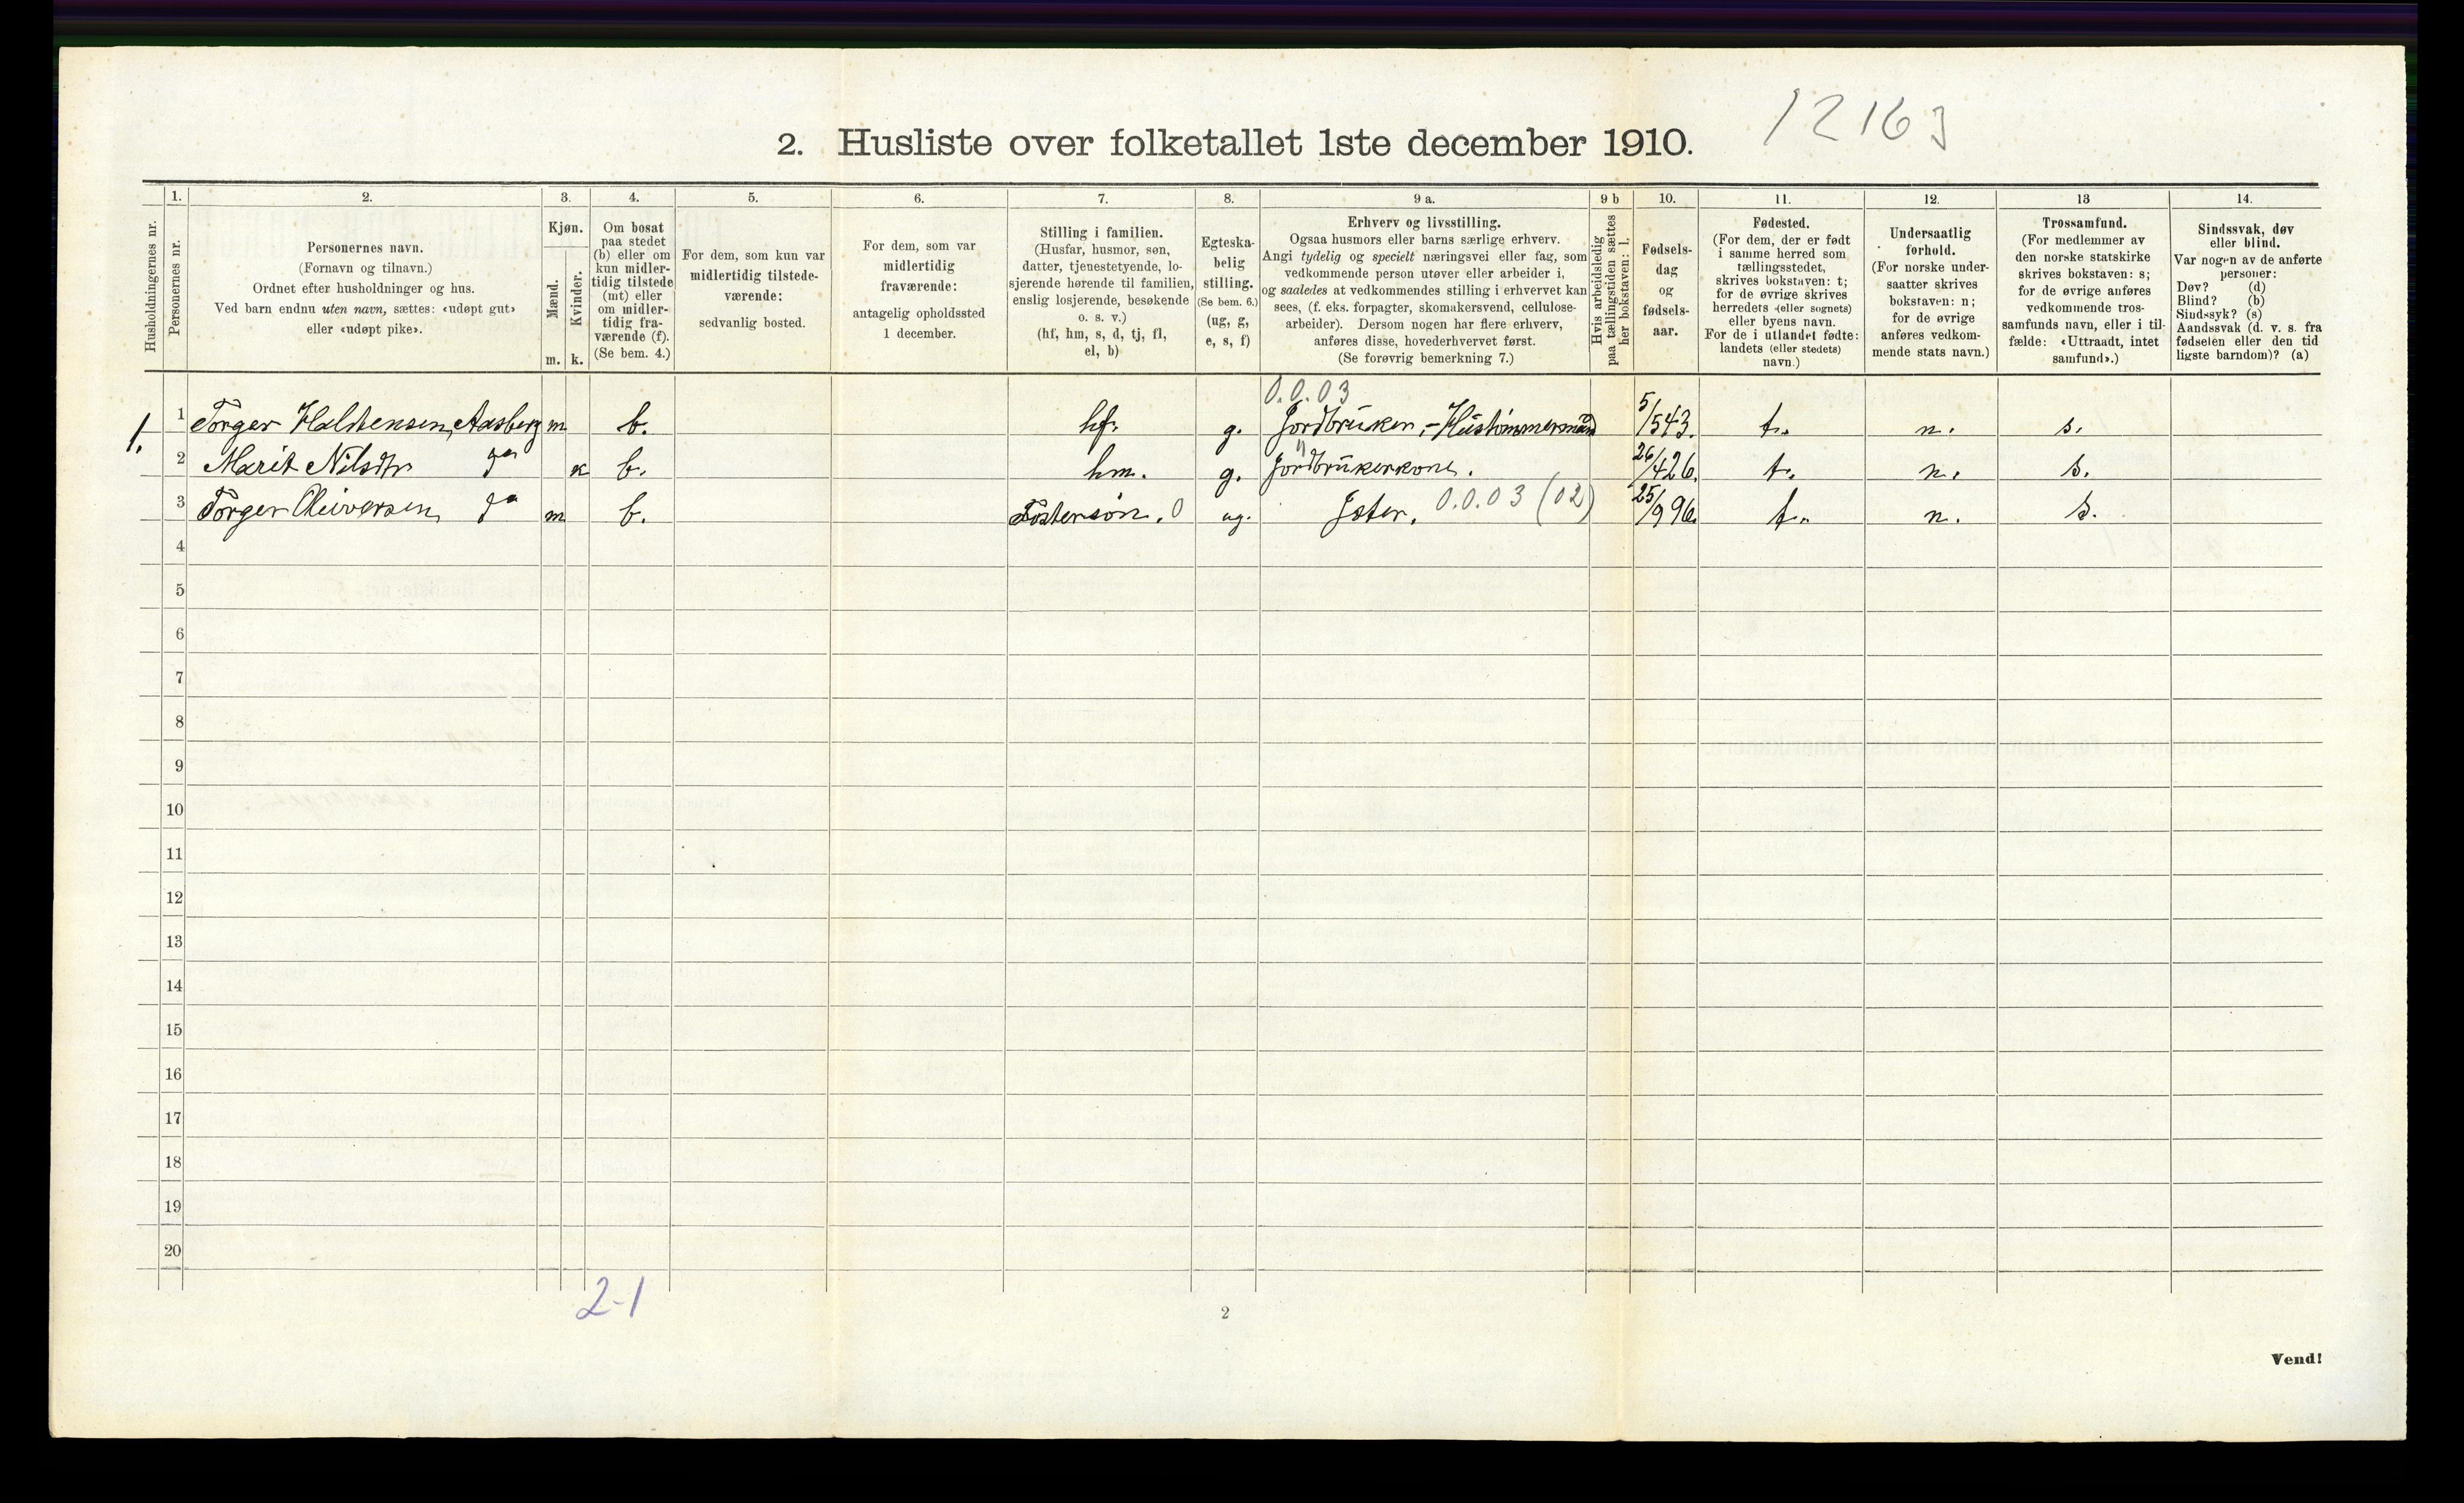 12163
2. Husliste over folketallet 1ste december 1910.
Husholdningernes nr.
1.
Personernes nr.
2.
Personernes navn.
(Fornavn og tilnavn.)
Ordnet efter husholdninger og hus.
Ved barn endnu uten navn, sættes: «udøpt gut»
eller «udøpt pike».
3.
Kjøn.
Mænd.
Kvinder.
m. k.
4.
Om bosat
paa stedet
(b) eller om
kun midler-
tidig tilstede
(mt) eller
om midler-
tidig fra-
værende (f).
(Se bem. 4.)
5.
For dem, som kun var
midlertidig tilstede-
værende:
sedvanlig bosted.
6.
For dem, som var
midlertidig
fraværende:
antagelig opholdssted
1 december.
7.
Stilling i familien.
(Husfar, husmor, søn,
datter, tjenestetyende, lo-
sjerende hørende til familien,
enslig losjerende, besøkende
o. s. v.)
(hf, hm, s, d, tj, fl,
el, b)
8.
Egteska-
belig
stilling.
(Se bem. 6.)
(ug, g,
e, s, f)
9 a.
Erhverv og livsstilling.
Ogsaa husmors eller barns særlige erhverv.
Angi tydelig og specielt næringsvei eller fag, som
vedkommende person utøver eller arbeider i,
og saaledes at vedkommendes stilling i erhvervet kan
sees, (f. eks. forpagter, skomakersvend, cellulose-
arbeider). Dersom nogen har flere erhverv,
anføres disse, hovederhvervet først.
(Se forøvrig bemerkning 7.)
9 b
Hvis arbeidsledig
paa tællingstiden sættes
her bokstaven: l.
10.
Fødsels-
dag
og
fødsels-
aar.
11.
Fødested.
(For dem, der er født
i samme herred som
tællingsstedet,
skrives bokstaven: t;
for de øvrige skrives
herredets (eller sognets)
eller byens navn.
For de i utlandet fødte:
landets (eller stedets)
navn.)
12.
Undersaatlig
forhold.
(For norske under-
saatter skrives
bokstaven: n;
for de øvrige
anføres vedkom-
mende stats navn.)
13
Trossamfund.
(For medlemmer av
den norske statskirke
skrives bokstaven: s;
for de øvrige anføres
vedkommende tros-
samfunds navn, eller i til-
fælde: «Uttraadt, intet
samfund».)
14.
Sindssvak, døv
eller blind.
Var nogen av de anførte
personer:
Døv? (d)
Blind? (b)
Sindssyk? (s)
Aandssvak (d. v. s. fra
fødselen eller den tid
ligste barndom)? (a)
0.0.03
1. 1 Torger Halstensen Aasberg m b. hf. g. Jordbruker, - Hustømmermand 5/5 43. t. n. s.
2 Marit Nilsdtr do k b. hm. g. Jordbrukerkone. 26/4 26. t. n. s.
3 Torger Oliversen do m b. Fostersøn. 0 ug. Jster. 0.0.03 (02) 25/9 96. t. n. s.
4
5
6
7
8
9
10
11
12
13
14
15
16
17
18
19
20
2-1
2
Vend!